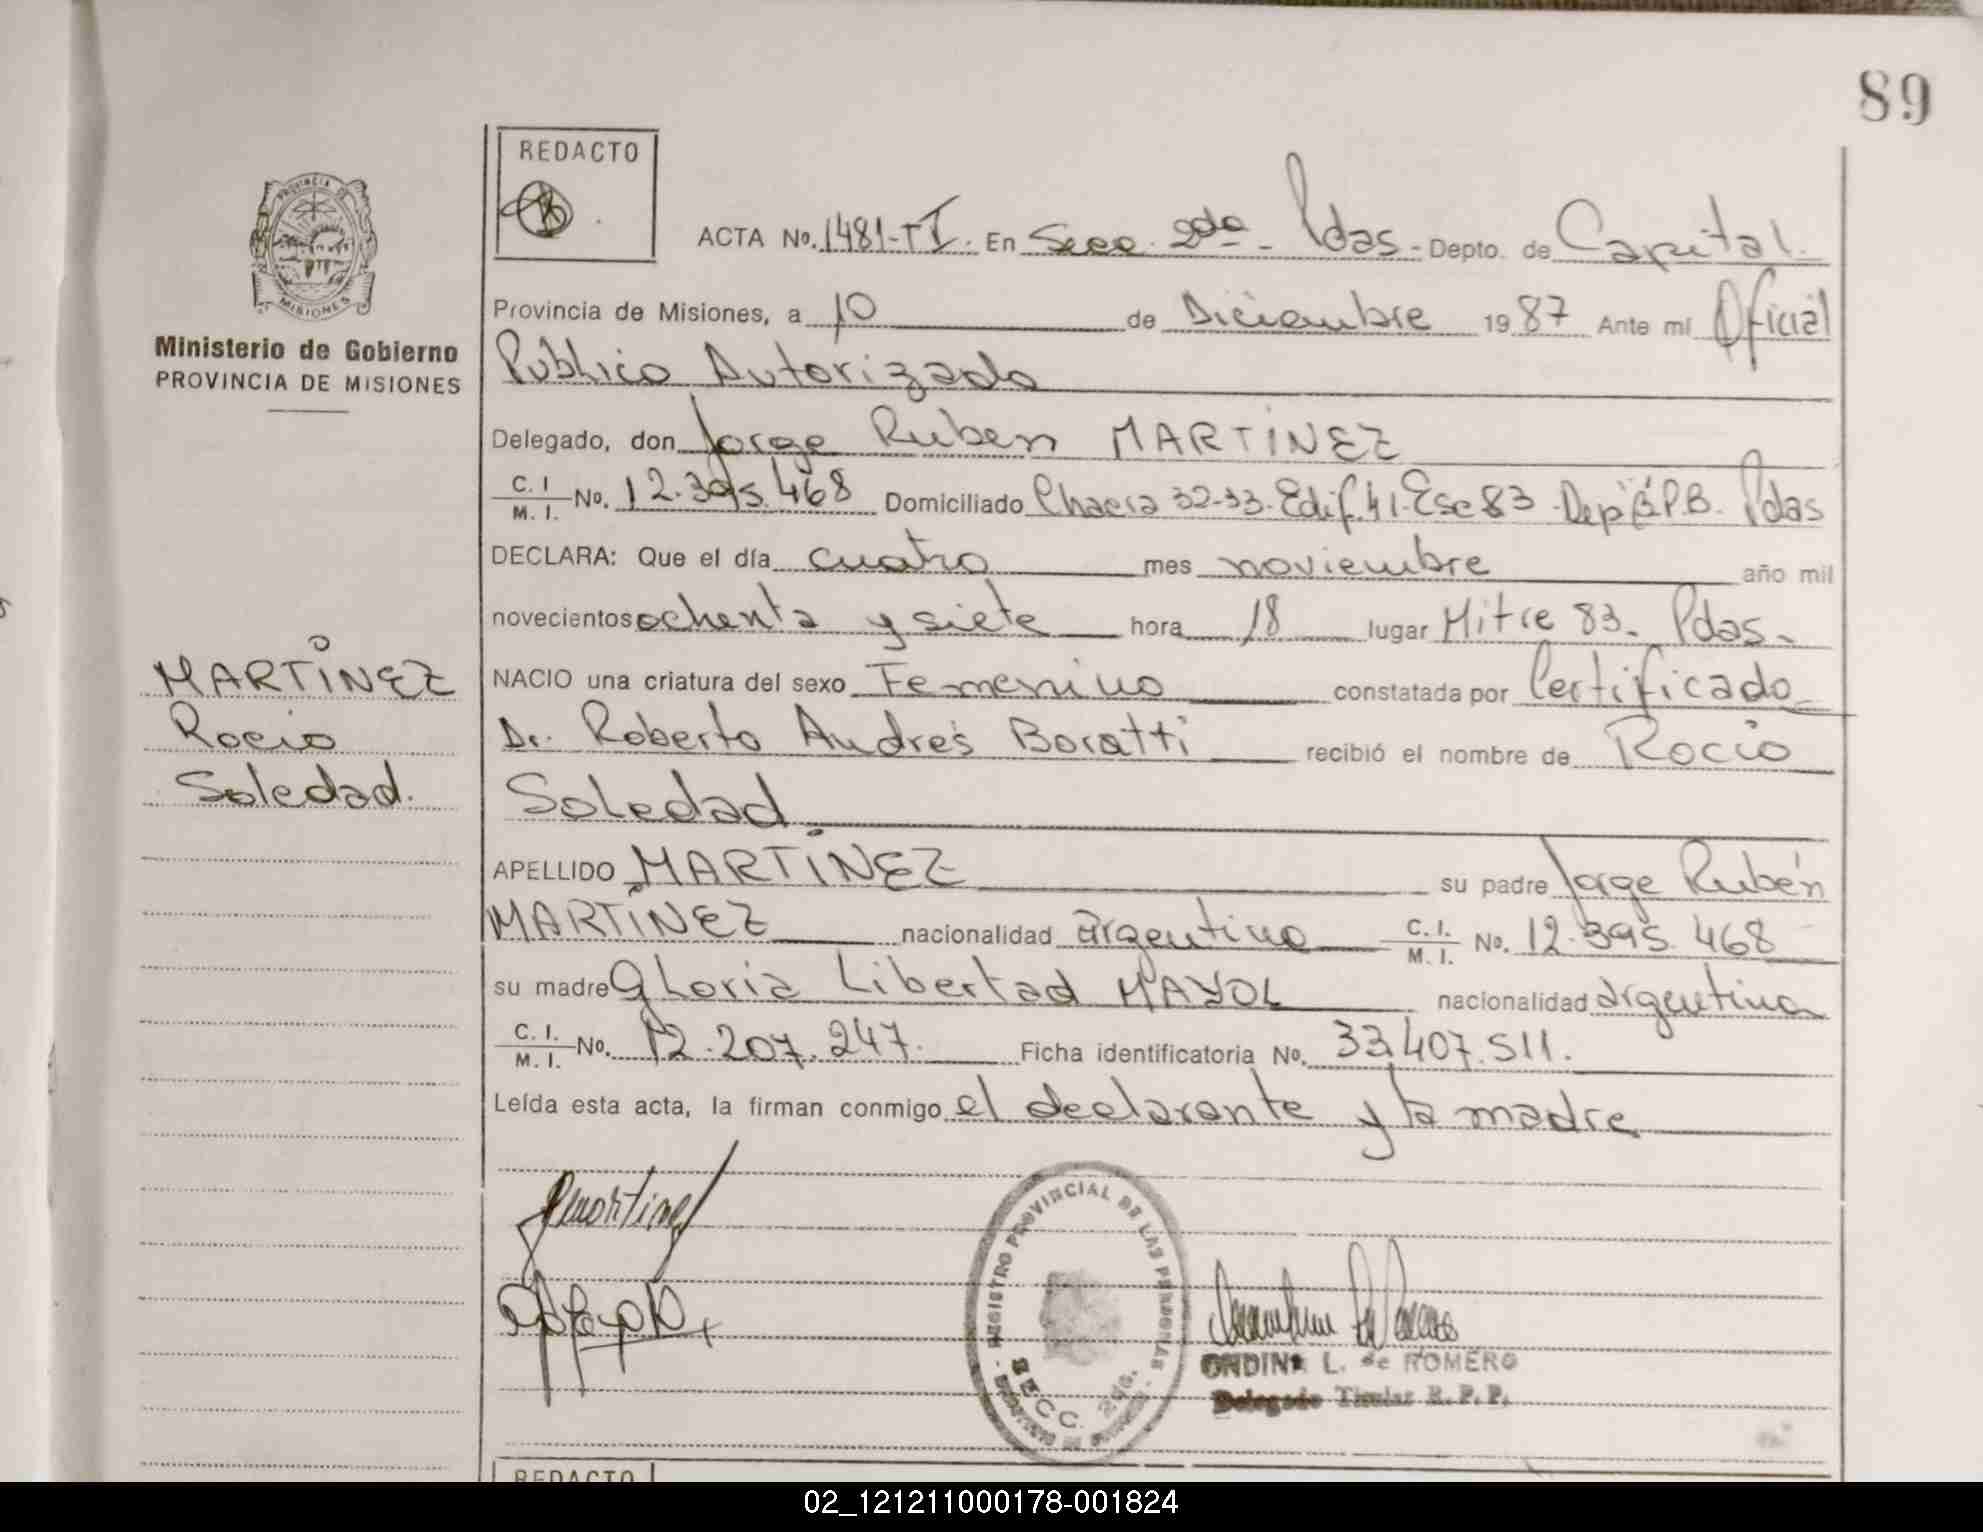 89
REDACTO
PROVINCIA DE
MISIONES
Ministerio de Gobierno
PROVINCIA DE MISIONES
ACTA No. 1481-TI. En Secc. 2da - Pdas - Depto. de Capital.
Provincia de Misiones, a 10 de Diciembre 1987 Ante mí Oficial
Publico Autorizado
Delegado, don Jorge Ruben MARTINEZ
C. I
M. I. No. 12.395.468 Domiciliado Chacra 32-33-Edif.41-Esc 83-Dep P.B. Pdas
DECLARA: Que el día cuatro mes noviembre año mil
novecientos ochenta y siete hora 18 lugar Mitre 83 - Pdas -
NACIO una criatura del sexo Femenino constatada por Certificado
Dr. Roberto Andrés Boratti recibió el nombre de Rocio
Soledad
MARTÍNEZ
Rocio
Soledad.
APELLIDO MARTÍNEZ su padre Jorge Rubén
MARTÍNEZ nacionalidad argentino C. I.
M. I. No. 12.395.468
su madre Gloria Libertad MAYOL nacionalidad argentina
C. I.
M. I. No. 12.207.247. Ficha identificatoria No. 33.407.511.
Leída esta acta, la firman conmigo el declarante y la madre
REGISTRO PROVINCIAL DE LAS PERSONAS
SECC. 2da.
ONDINA L. de ROMERO
Delegado Titular R. P. P.
REDACTO
02_121211000178-001824